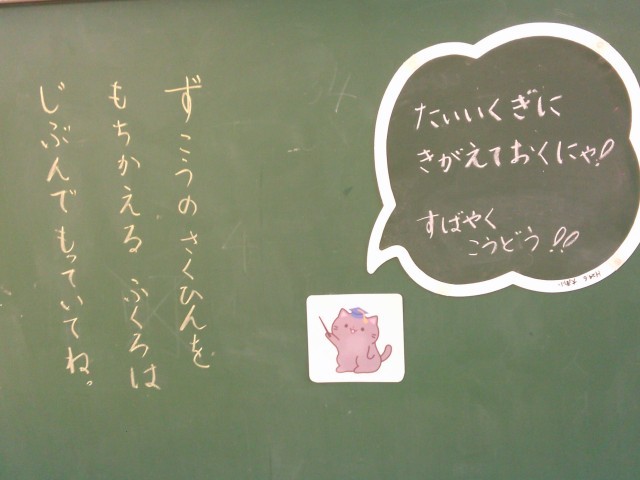 ずこうのさくひんを
もちかえる ふくろは
じぶんでもっていてね。
たいいくぎに
きがえておくにゃ!
すばやく
こうどう!!